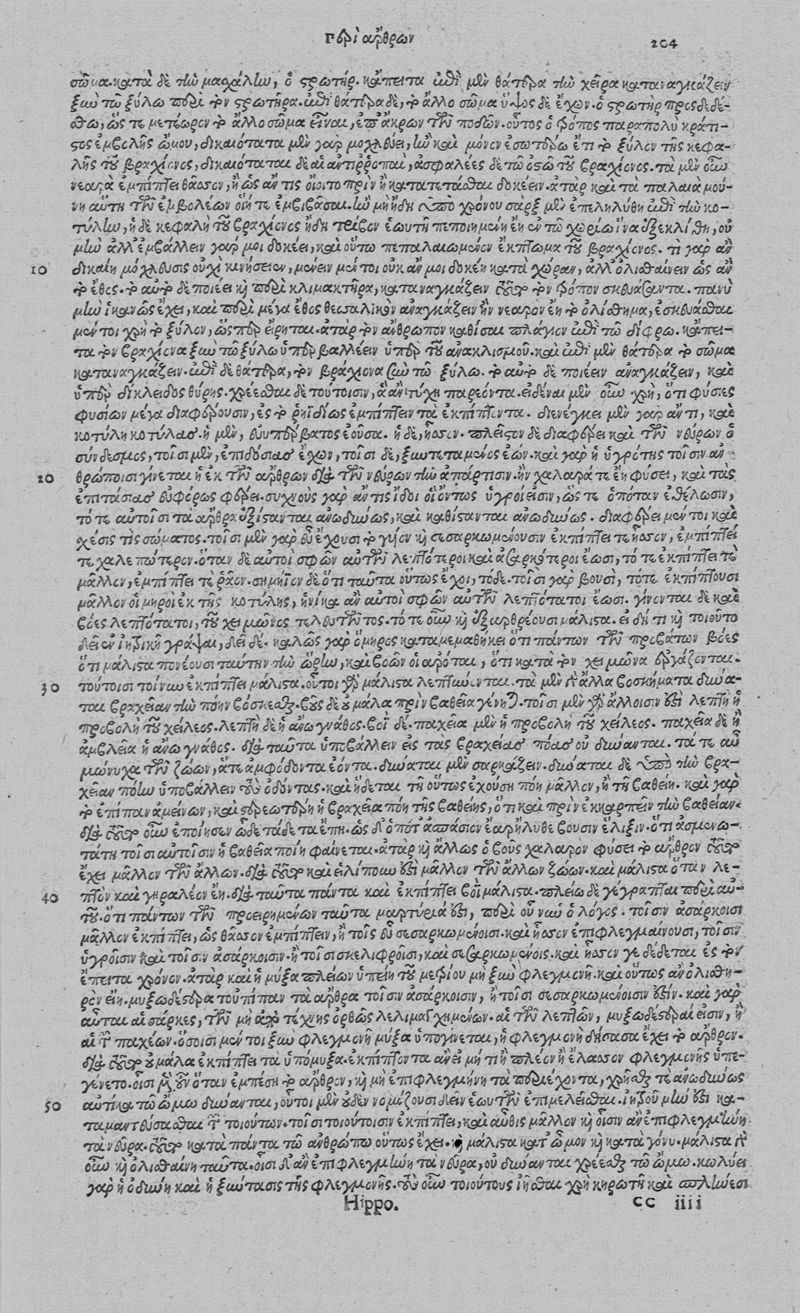 Περὶ ἄρθρων 204
σῶμα. κατὰ δὲ τὴν μασχάλην, ὁ στρωτήρ. κἄπειτα ἐπὶ μὲν θάτερα τὴν χεῖρα καταναγκάζειν
ἔξω τοῦ ξύλου περὶ τὸν στρωτῆρα. ἐπὶ θάτερα δὲ, τὸ ἄλλο σῶμα ὕψος δὲ ἔχων. ὁ στρωτὴρ προσδεδέ-
σθω, ὥς τε μετέωρον τὸ ἄλλο σῶμα εἶναι, ἐπ' ἄκρων τῶν ποδῶν. οὗτος ὁ τρόπος παραπολὺ κράτι-
στος ἐμβολῆς ὤμου, δικαιότατα μὲν γὰρ μοχλεύει, ἢν καὶ μόνον ἐσωτέρω ἔῃ τὸ ξύλον τῆς κεφα-
λῆς τοῦ βραχίονος, δικαιόταται δὲ αἱ ἀντιρροπαὶ, ἀσφαλέες δὲ τῷ ὀστέῳ τοῦ βραχίονος. τὰ μὲν οὖν
νεαρὰ ἐμπίπτει θᾶσσον, ἢ ὡς ἄν τις οἴοιτο πρὶν ἢ κατατετάσθαι δοκέειν. ἀτὰρ καὶ τὰ παλαιὰ μού-
νη αὕτη τῶν ἐμβολέων οἵη τε ἐμβιβάσαι. ἢν μὴ ἤδη ὑπὸ χρόνου σὰρξ μὲν ἐπεληλύθῃ ἐπὶ τὴν κο-
τύλην, ἡ δὲ κεφαλὴ τοῦ βραχίονος ἤδη τρίβον ἑωυτῇ πεποιημένη ἔῃ ἐν τῷ χωρίῳ ἵνα ἐξεκλίθη, οὐ
μὴν ἀλλ' ἐμβάλλειν γάρ μοι δοκέει, καὶ οὕτω πεπαλαιωμένον ἔκπτωμα τοῦ βραχίονος. τί γὰρ ἂν
10 δικαίη μόχλευσις οὐχὶ κινήσειεν, μένειν μέντοι οὐκ ἄν μοι δοκέῃ κατὰ χώραν, ἀλλ' ὀλισθαίνειν ὡς ἂν
τὸ ἔθος. τὸ αὐτὸ δὲ ποιέει καὶ περὶ κλιμακτῆρα, καταναγκάζειν τοῦτον τὸν τρόπον σκευάσαντα. πάνυ
μὴν ἱκανῶς ἔχει, καὶ περὶ μέγα ἕδος θεσσαλικὸν ἀναγκάζειν ἢν νεαρὸν ἔῃ τὸ ὀλίσθημα, ἐσκευάσθαι
μέντοι χρὴ τὸ ξύλον, ὥσπερ εἴρηται. ἀτὰρ τὸν ἄνθρωπον καθίσαι πλάγιον ἐπὶ τῷ δίφρῳ. κἄπει-
τα τὸν βραχίονα ξὺν τῷ ξύλῳ ὑπερβάλλειν ὑπὲρ τοῦ ἀνακλισμοῦ. καὶ ἐπὶ μὲν θάτερα τὸ σῶμα
καταναγκάζειν. ἐπὶ δὲ θάτερα, τὸν βραχίονα ξὺν τῷ ξύλῳ. τὸ αὐτὸ δὲ ποιέειν ἀναγκάζειν, καὶ
ὑπὲρ δίκλειδος θύρης. χρέεσθαι δὲ τούτοισιν, ἃ ἂν τύχῃ παρεόντα. εἰδέναι μὲν οὖν χρὴ, ὅτι φύσιες
φυσίων μέγα διαφέρουσιν, ἐς τὸ ῥηϊδίως ἐμπίπτειν τὰ ἐκπίπτοντα. διενέγκει μὲν γὰρ ἄν τι, καὶ
κοτύλη κοτύλης. ἡ μὲν, εὐυπέρβατος ἐοῦσα. ἡ δὲ, ἧσσον. πλεῖστον δὲ διαφέρει καὶ τῶν νεύρων ὁ
σύνδεσμος, τοῖσι μὲν, ἐπιδόσιας ἔχων, τοῖσι δὲ, ξυντεταμένος ἐών. καὶ γὰρ ἡ ὑγρότης τοῖσιν ἀν-
20 θρώποισι γίνεται ἡ ἐκ τῶν ἄρθρων διὰ τῶν νεύρων τὴν ἀπάρτισιν. ἢν χαλαρά τε ἔῃ φύσει, καὶ τὰς
ἐπιτάσιας εὐφόρως φέρει. συχνοὺς γὰρ ἄν τις ἴδοι οἳ οὕτως ὑγροί εἰσιν, ὥς τε ὁπόταν ἐθέλωσιν,
τότε αὐτοῖσι τὰ ἄρθρα ἐξίσταται ἀνωδύνως, καὶ καθίσταται ἀνωδύνως. διαφέρει μέντοι καὶ
σχέσις τῆς σώματος. τοῖσι μὲν γὰρ εὖ ἔχουσι τὸ γυῖον καὶ σεσαρκωμένοισιν ἐκπίπτει τε ἧσσον, ἐμπίπτει
τε χαλεπώτερον. ὅταν δὲ αὐτοὶ σφῶν αὐτῶν λεπτότεροι καὶ ἀσαρκότεροι ἔωσι, τότε ἐκπίπτει τε
μᾶλλον, ἐμπίπτει τε ῥᾷον. σημεῖον δὲ ὅτι ταῦτα οὕτως ἔχει, τόδε. τοῖσι γὰρ βουσὶ, τότε ἐκπίπτουσι
μᾶλλον οἱ μηροὶ ἐκ τῆς κοτύλης, ἡνίκα ἂν αὐτοὶ σφῶν αὐτῶν λεπτότατοι ἔωσι. γίνονται δὲ καὶ
βόες λεπτότατοι, τοῦ χειμῶνος τελευτῶντος. τότε οὖν καὶ ἐξαρθρέουσι μάλιστα. εἰ δή τι καὶ τοιοῦτο
δεῖ ἐν ἰητρικῇ γράψαι, δεῖ δέ. καλῶς γὰρ ὅμηρος καταμεμαθήκει ὅτι πάντων τῶν προβάτων βόες
ὅτι μάλιστα πονέουσι ταύτην τὴν ὥρην, καὶ βοῶν οἱ ἀρόται, ὅτι κατὰ τὸν χειμῶνα ἐργάζονται.
30 τούτοισι τοίνυν ἐκπίπτει μάλιστα. οὗτοι γὰρ μάλιστα λεπτύνονται. τὰ μὲν γὰρ ἄλλα βοσκήματα δύνα-
ται βραχεῖαν τὴν πόην βόσκεσθαι. βοῦς δὲ οὐ μάλα πρὶν βαθεῖα γένηται. τοῖσι μὲν γὰρ ἄλλοισιν ἐστὶ λεπτὴ ἡ
προβολὴ τοῦ χείλεος. λεπτὴ δὲ ἡ ἄνω γνάθος. βοῒ δὲ. παχεῖα μὲν ἡ προβολὴ τοῦ χείλεος. παχεῖα δὲ ἡ
ἀμβλεῖα ἡ ἄνω γνάθος. διὰ ταῦτα ὑποβάλλειν εἰς τὰς βραχείας πόας οὐ δύνανται. τά τε αὖ
μώνυχα τῶν ζώων, ἅτε ἀμφόδοντα ἐόντα. δύναται μὲν σαρκάζειν. δύναται δὲ ὑπὸ τὴν βρα-
χεῖαν πόην ὑποβάλλειν τοὺς ὀδόντας. καὶ ἥδεται τῇ οὕτως ἐχούσῃ πόῃ μᾶλλον, ἢ τῇ βαθείῃ. καὶ γὰρ
τὸ ἐπίπαν ἀμείνων, καὶ στερεωτέρη ἡ βραχεῖα πόη τῆς βαθείης, ὅτι καὶ πρὶν ἐκκαρπεῖν τὴν βαθεῖαν.
διὰ τοῦτο οὖν ἐποίησεν ὧδε τάδε τὰ ἔπη. ὡς δ' ὁπότ' ἀσπάσιον ἔαρ ἤλυθε βουσὶν ἕλιξιν. ὅτι ἀσμενω-
τάτη τοῖσι αὐτοῖσιν ἡ βαθεῖα ποίη φαίνεται. ἀτὰρ καὶ ἄλλως ὁ βοῦς χαλαρὸν φύσει τὸ ἄρθρον τοῦτο
ἔχει μᾶλλον τῶν ἄλλων. διὰ τοῦτο καὶ εἰλίπουν ἐστὶ μᾶλλον τῶν ἄλλων ζώων. καὶ μάλιστα ὅταν λε-
40 πτὸν καὶ γηραλέον ἔῃ. διὰ ταῦτα πάντα καὶ ἐκπίπτει βοῒ μάλιστα. πλείω δὲ γέγραπται περὶ αὐ-
τοῦ. ὅτι πάντων τῶν προειρημένων ταῦτα μαρτύριά ἐστι, περὶ οὗ νῦν ὁ λόγος. τοῖσιν ἀσάρκοισι
μᾶλλον ἐκπίπτει, ὡς θᾶσσον ἐμπίπτειν, ἢ τοῖς εὖ σεσαρκωμένοισι. καὶ ἧσσον ἐπιφλεγμαίνουσι, τοῖσιν
ὑγροῖσιν καὶ τοῖσιν ἀσάρκοισιν. ἢ τοῖσι σκελιφροῖσι, καὶ σεσαρκωμένοις. καὶ ἧσσον γε δέδεται ἐς τὸν
ἔπειτα χρόνον. ἀτὰρ καὶ ἡ μύξα πλείων ὑπείη τοῦ μετρίου μὴ ξὺν φλεγμονῇ. καὶ οὕτως ἂν ὀλισθη-
ρὸν εἴη. μυξωδέστερα τοὐπίπαν τὰ ἄρθρα τοῖσιν ἀσάρκοισιν, ἢ τοῖσι σεσαρκωμένοισιν ἐστίν. καὶ γὰρ
αὗται αἱ σάρκες, τῶν μὴ ἀπὸ τέχνης ὀρθῶς λελιμαγχημένων. αἱ τῶν λεπτῶν, μυξωδέστεραί εἰσιν, ἢ
αἱ τῶν παχέων. ὅσοισι μέντοι ξὺν φλεγμονῇ μύξα ὑπογίνεται, ἡ φλεγμονὴ δήσασα ἔχει τὸ ἄρθρον.
διὰ τοῦτο οὐ μάλα ἐκπίπτει τὰ ὑπόμυξα. ἐκπίπτοντα ἂν εἰ μή τι ἢ πλέον ἢ ἔλασσον φλεγμονῆς ὑπε-
γένετο. οἷσι μὲν οὖν ὅταν ἐμπέσῃ τὸ ἄρθρον, καὶ μὴ ἐπιφλεγμήνῃ τὰ περιέχοντα, χρῆσθαί τε ἀνωδύνως
50 αὐτίκα τῷ ὤμῳ δύνανται, οὗτοι μὲν οὐδὲν νομίζουσι δεῖν ἑωυτῶν ἐπιμελεῖσθαι. ἰητροῦ μὴν ἐστὶ κα-
ταμαντεύσασθαι τῶν τοιούτων. τοῖσι τοιούτοισιν ἐκπίπτει, καὶ αὖθις μᾶλλον ἢ οἷσιν ἂν ἐπιφλεγμήνῃ
τὰ νεῦρα. τοῦτο κατὰ πάντα τῷ ἀνθρώπῳ οὕτως ἔχει. καὶ μάλιστα κατ' ὦμον καὶ κατὰ γόνυ. μάλιστα γὰρ
οὖν καὶ ὀλισθαίνῃ ταῦτα. οἷσι δ' ἂν ἐπιφλεγμήνῃ τὰ νεῦρα, οὐ δύνανται χρέεσθαι τῷ ὤμῳ. κωλύει
γὰρ ἡ ὀδύνη καὶ ἡ ξύντασις τῆς φλεγμονῆς. τοὺς οὖν τοιούτους ἰῆσθαι χρὴ κηρωτῇ καὶ σπλήνεσι
Hippo. CC iiii